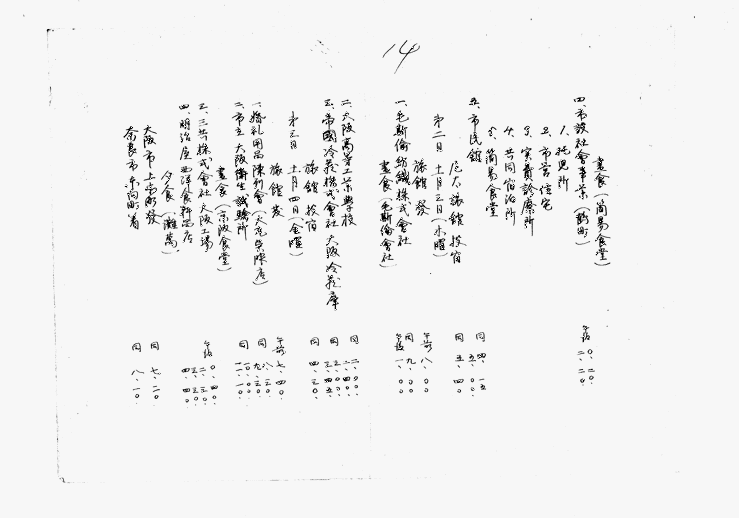 14
晝食（簡易食堂） 午後 〇、二〇.
四、市設社會事業（鶴町） 二、二〇.
1、託児所
2、市営住宅
3、実費診療所
4、共同宿泊所
5、簡易食堂
五、市民館 同 四、一五
五、〇〇.
旅館投宿 同 五、四〇
第二日 十一月三日（木曜）
旅館発 午前 八、〇〇
一、毛斯倫紡織株式會社 同 九、〇〇.
晝食（毛斯倫會社） 午後 一、〇〇.
二、大阪高等工業學校 同 二、〇〇.
二、四〇.
三、帝國冷蔵株式會社大阪冷蔵庫 同 三、〇〇.
三、四五.
旅館投宿 同 四、三〇.
第三日 十一月四日（金曜）
旅館発 午前 七、四〇.
一、婚礼用品陳列會 八、三〇.
同 九、三〇.
二、市立大阪衛生試験所 同 一〇、〇〇.
一一、一〇.
晝食（京阪食堂） 午後 〇、四〇.
三、三共株式會社大阪工場 二、三〇.
三、三〇.
四、明治屋西洋食料品店 四、四〇.
夕食（灘萬）.
大阪市上本町発 同 七、二〇
奈良市東向町着 同 八、一〇.